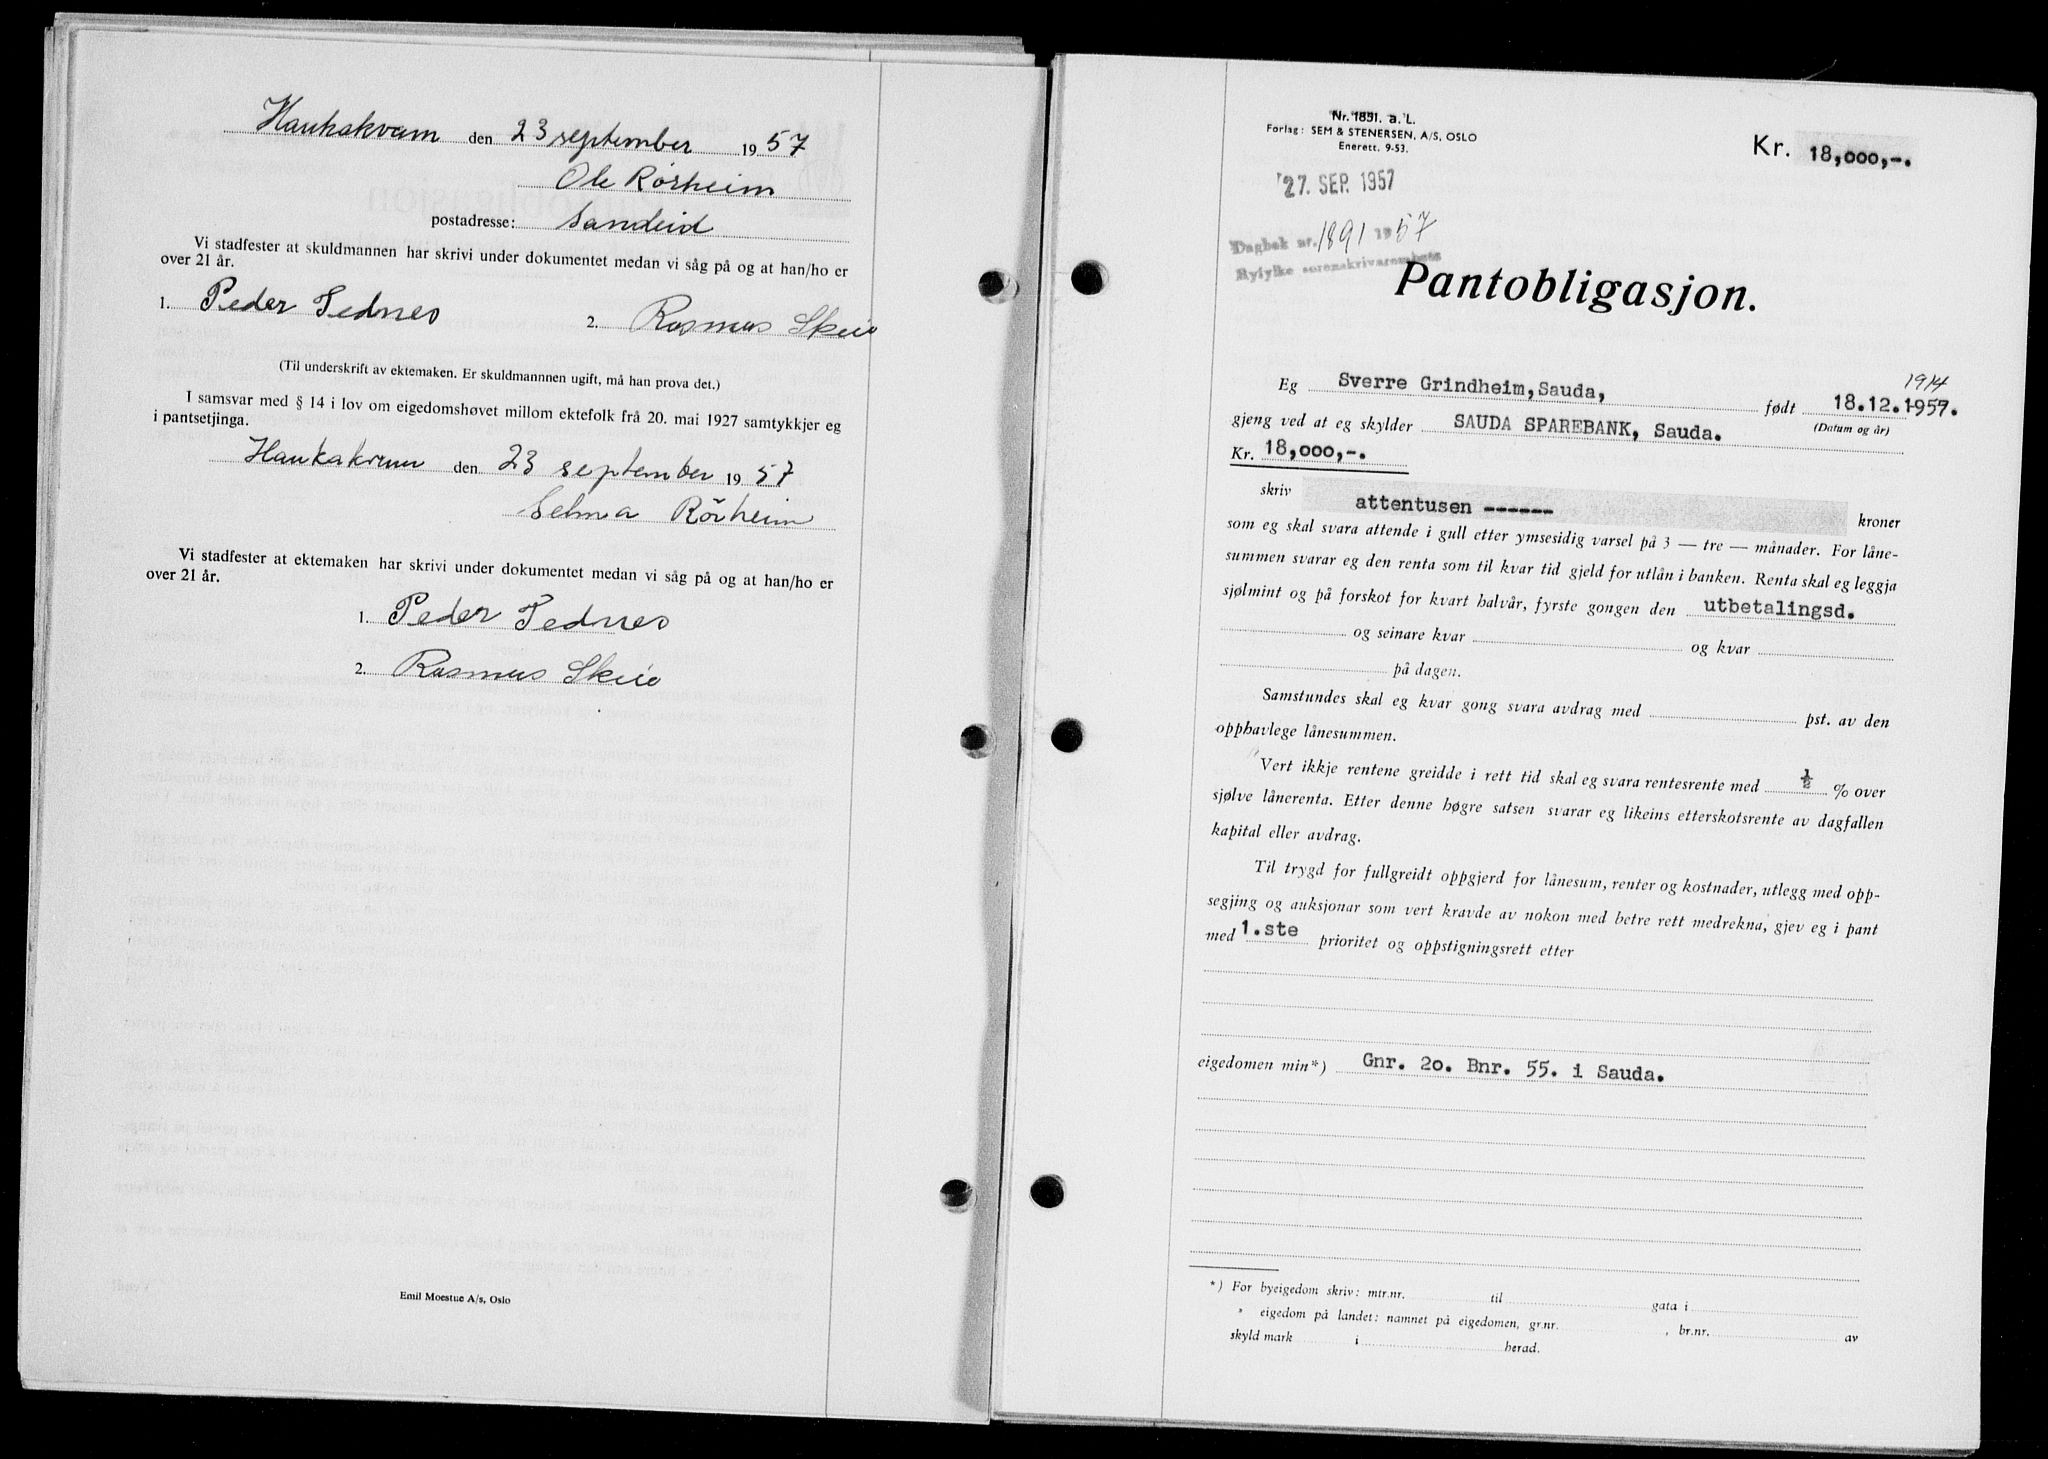 Haukakvam den 23 september 1957
Ole Rørheim
postadresse: Sandeid
Vi stadfester at skuldmannen har skrivi under dokumentet medan vi såg på og at han/ho er
over 21 år.
1. Peder Tednes 2. Rasmus Skeie
(Til underskrift av ektemaken. Er skuldmannnen ugift, må han prova det.)
I samsvar med § 14 i lov om eigedomshøvet millom ektefolk frå 20. mai 1927 samtykkjer eg
i pantsetjinga.
Haukakvam den 23 september 1957
Selma Rörheim
Vi stadfester at ektemaken har skrivi under dokumentet medan vi såg på og at han/ho er
over 21 år.
1. Peder Tednes
2. Rasmus Skeie
Emil Moestue A/s, Oslo
Nr. 1831. a. L.
Forlag: SEM & STENERSEN, A/S, OSLO
Enerett. 9-53.
Kr. 18,000,-.
27. SEP. 1957
Dagbok nr. 1891 1957
Ryfylke sorenskrivarembete
Pantobligasjon.
1914
Eg Sverre Grindheim, Sauda, født 18.12.1957.
(Datum og år)
gjeng ved at eg skylder SAUDA SPAREBANK, Sauda.
Kr. 18,000,-.
skriv attentusen ------ kroner
som eg skal svara attende i gull etter ymsesidig varsel på 3 — tre — månader. For låne-
summen svarar eg den renta som til kvar tid gjeld for utlån i banken. Renta skal eg leggja
sjølmint og på forskot for kvart halvår, fyrste gongen den utbetalingsd.
og seinare kvar og kvar
på dagen.
Samstundes skal eg kvar gong svara avdrag med pst. av den
opphavlege lånesummen.
Vert ikkje rentene greidde i rett tid skal eg svara rentesrente med ½ % over
sjølve lånerenta. Etter denne høgre satsen svarar eg likeins etterskotsrente av dagfallen
kapital eller avdrag.
Til trygd for fullgreidt oppgjerd for lånesum, renter og kostnader, utlegg med opp-
segjing og auksjonar som vert kravde av nokon med betre rett medrekna, gjev eg i pant
med 1.ste prioritet og oppstigningsrett etter
eigedomen min*) Gnr. 20. Bnr. 55. i Sauda.
*) For byeigedom skriv: mtr.nr. til gata i
" eigedom på landet: namnet på eigedomen, gr.nr. , br.nr. av
skyld mark i herad.